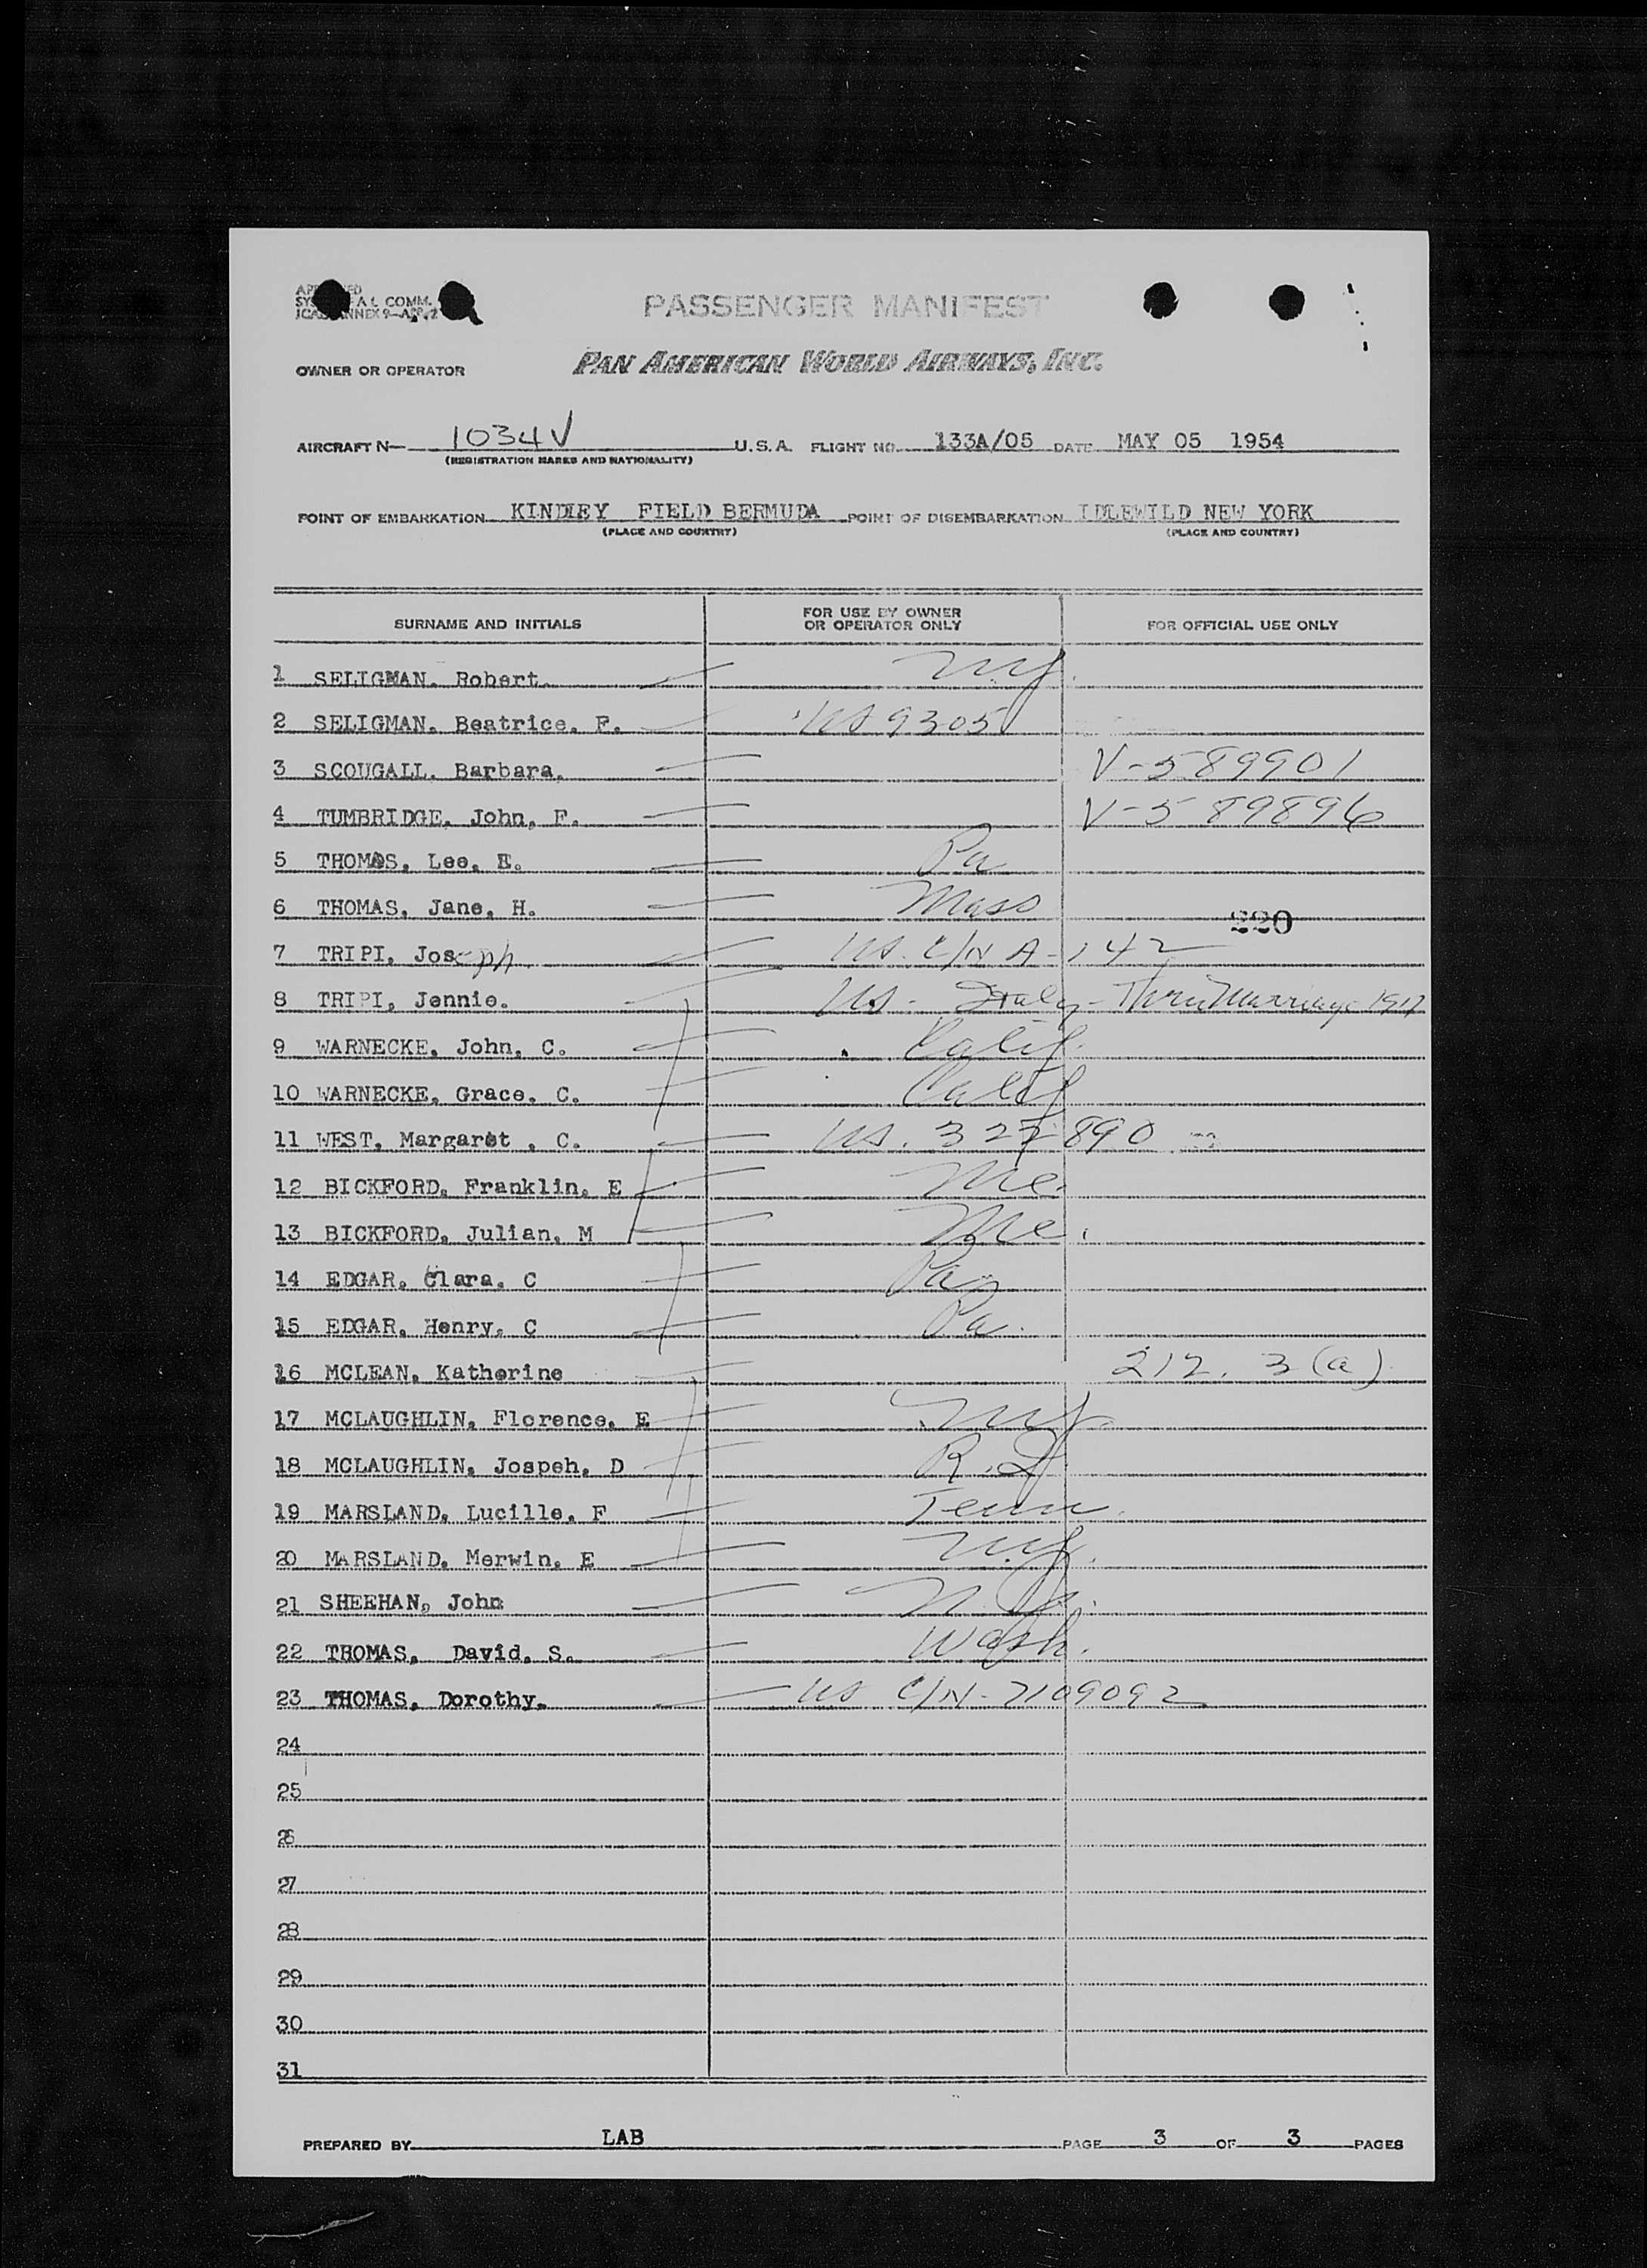 PASSENGER MANIFEST
OWNER OR OPERATOR PAN AMERICAN WORLD AIRWAYS, INC.
AIRCRAFT N- 1034V U.S.A. FLIGHT NO. 133A/05 DATE MAY 05 1954
(REGISTRATION MARKS AND NATIONALITY)
POINT OF EMBARKATION KINDLEY FIELD BERMUDA POINT OF DISEMBARKATION IDLEWILD NEW YORK
(PLACE AND COUNTRY) (PLACE AND COUNTRY)
SURNAME AND INITIALS FOR USE BY OWNER OR OPERATOR ONLY FOR OFFICIAL USE ONLY
1 SELIGMAN. Robert. N.Y.
2 SELIGMAN. Beatrice. F. US 9305
3 SCOUGALL. Barbara. V-589901
4 TUMBRIDGE. John. F. V-589896
5 THOMAS. Lee. E. Pa
6 THOMAS. Jane. H. Mass
220
7 TRIPI. Joseph. US. C/N A-142
8 TRIPI, Jennie. US - Italy - Thru Marriage 1917
9 WARNECKE. John. C. Calif.
10 WARNECKE. Grace. C. Calif
11 WEST. Margaret . C. US. 327890
12 BICKFORD. Franklin. E Me.
13 BICKFORD. Julian. M Me.
14 EDGAR. Clara. C Pa
15 EDGAR. Henry. C Pa.
16 MCLEAN. Katherine 212. 3(a)
17 MCLAUGHLIN. Florence. E N.Y.
18 MCLAUGHLIN. Jospeh. D R.I
19 MARSLAND. Lucille. F Tenn.
20 MARSLAND. Merwin. E N.Y.
21 SHEEHAN, John N.Y.
22 THOMAS. David. S. Wash.
23 THOMAS. Dorothy. US C/N-7109092
24
25
26
27
28
29
30
31
PREPARED BY LAB PAGE 3 OF 3 PAGES